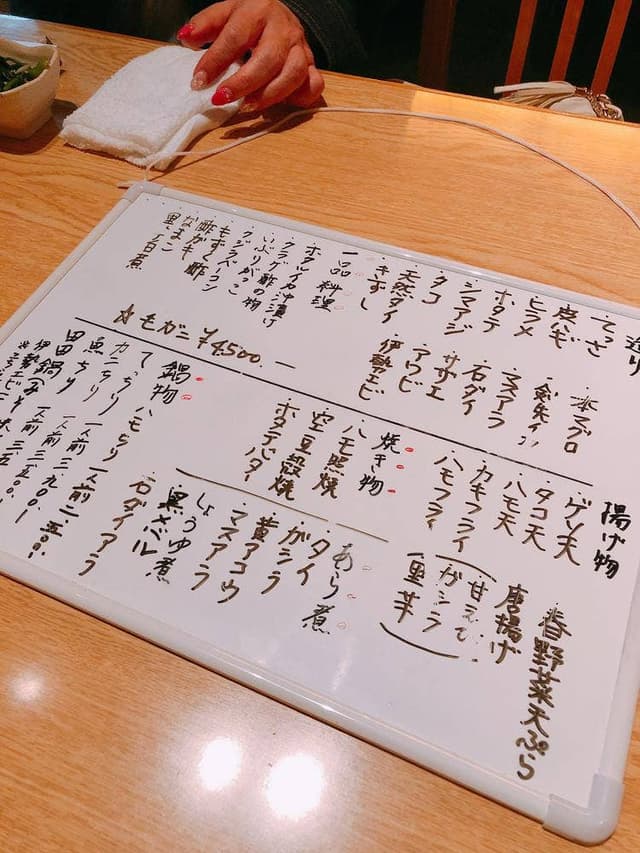 造り
・てっさ
・皮ハモ
・ヒラメ
・ホタテ
・シマアジ
・タコ
・天然ダイ
・きずし
本マグロ
剣先イカ
マスアラ
石ダイ
サザエ
アワビ
伊勢エビ
一品料理
ホタルイカ沖漬け
クラゲ酢の物
・いぶりがっこ
・クジラベーコン
・もずく酢
・酢がき
・なまこ
里芋白煮
☆モガニ ¥4,500.―
揚げ物
・ゲソ天
・タコ天
・ハモ天
・カキフライ
・ハモフライ
春野菜天ぷら
唐揚げ
甘えび
ガシラ
里芋
焼き物
ハモ照焼
空豆殻焼
ホタテバター
あら煮
タイ
ガシラ
黄アコウ
マスアラ
しょうゆ煮
黒メバル
石ダイアラ
鍋物
てっちり
ハモちり
カニちり 一人前 二、五〇〇.
魚ちり 一人前 三、九〇〇
田田鍋(みそ 一人前 三、五〇〇
伊勢エビ